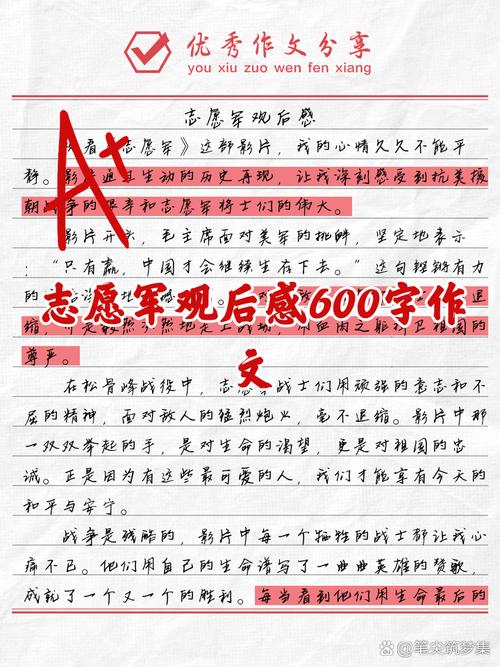 优秀作文分享
you xiu zuo wen fen xiang
A+
志愿军观后感
看《志愿军》这部影片，我的心情久久不能平
静。影片通过生动的历史再现，让我深刻感受到抗美援
朝战争的艰辛和志愿军将士们的伟大。
影片开头，毛主席面对美军的挑衅，坚定地表示
：“只有赢，中国才会继续生存下去。”这句铿锵有力
的
志愿军观后感600字作
文
缩，卫祖国的
尊严。
在松骨峰战役中，志战士们用顽强的意志和不
屈的精神，面对敌人的猛烈炮火，毫不退缩。影片中那
一双双举起的手，是对生命的渴望，更是对祖国的忠
诚。正是因为有这些最可爱的人，我们才能享有今天的
和平与安宁。
战争是残酷的，影片中每一个牺牲的战士都让我心
痛不已。他们用自己的生命谱写了一曲曲英雄的赞歌，
成就了一个又一个的胜利。每当看到他们用生命最后的
@笔尖筑梦集